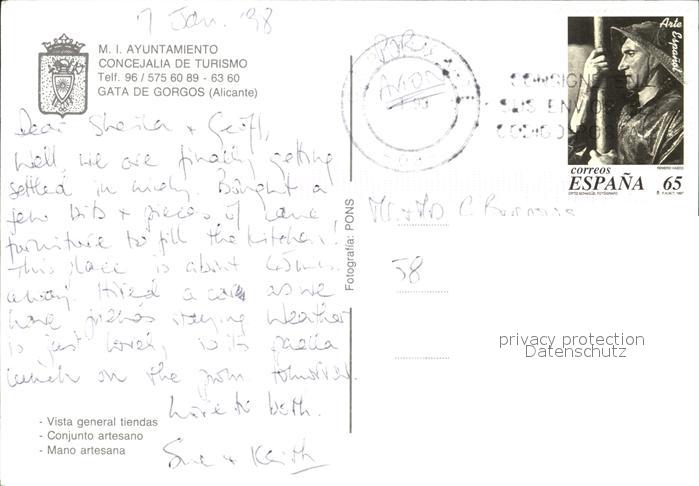 7 Jan. '98
M. I. AYUNTAMIENTO
CONCEJALIA DE TURISMO
Telf. 96 / 575 60 89 - 63 60
GATA DE GORGOS (Alicante)
Dear Sheila + Geoff,
Well, we are finally getting
settled in nicely. Bought a
few bits + pieces of cane
furniture to fill the kitchen!
This place is about
away. Hired a car as we
have friends staying Weather
is just lovely, so its paella
lunch on the prom tomorrow.
Love to both.
Sue + Keith
- Vista general tiendas
- Conjunto artesano
- Mano artesana
Fotografía: PONS
POR
AVION
CONSIGNE EN
SUS ENVIOS EL
CODIGO POSTAL
Arte Español
correos
ESPAÑA 65
Mr + Mrs C.
58
privacy protection
Datenschutz